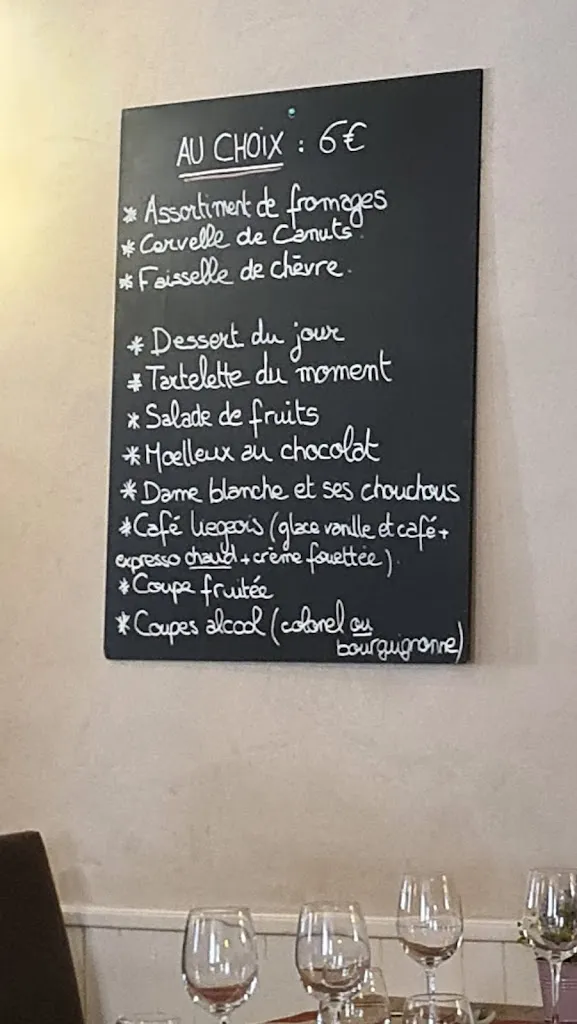 AU CHOIX : 6€
* Assortiment de fromages
* Cervelle de Canuts.
* Faisselle de chèvre.
* Dessert du jour
* Tartelette du moment
* Salade de fruits
* Moelleux au chocolat
* Dame blanche et ses chouchous
* Café liegeois (glace vanille et café +
expresso chaud + crème fouettée).
* Coupe fruitée
* Coupes alcool (colonel ou
bourguignonne)